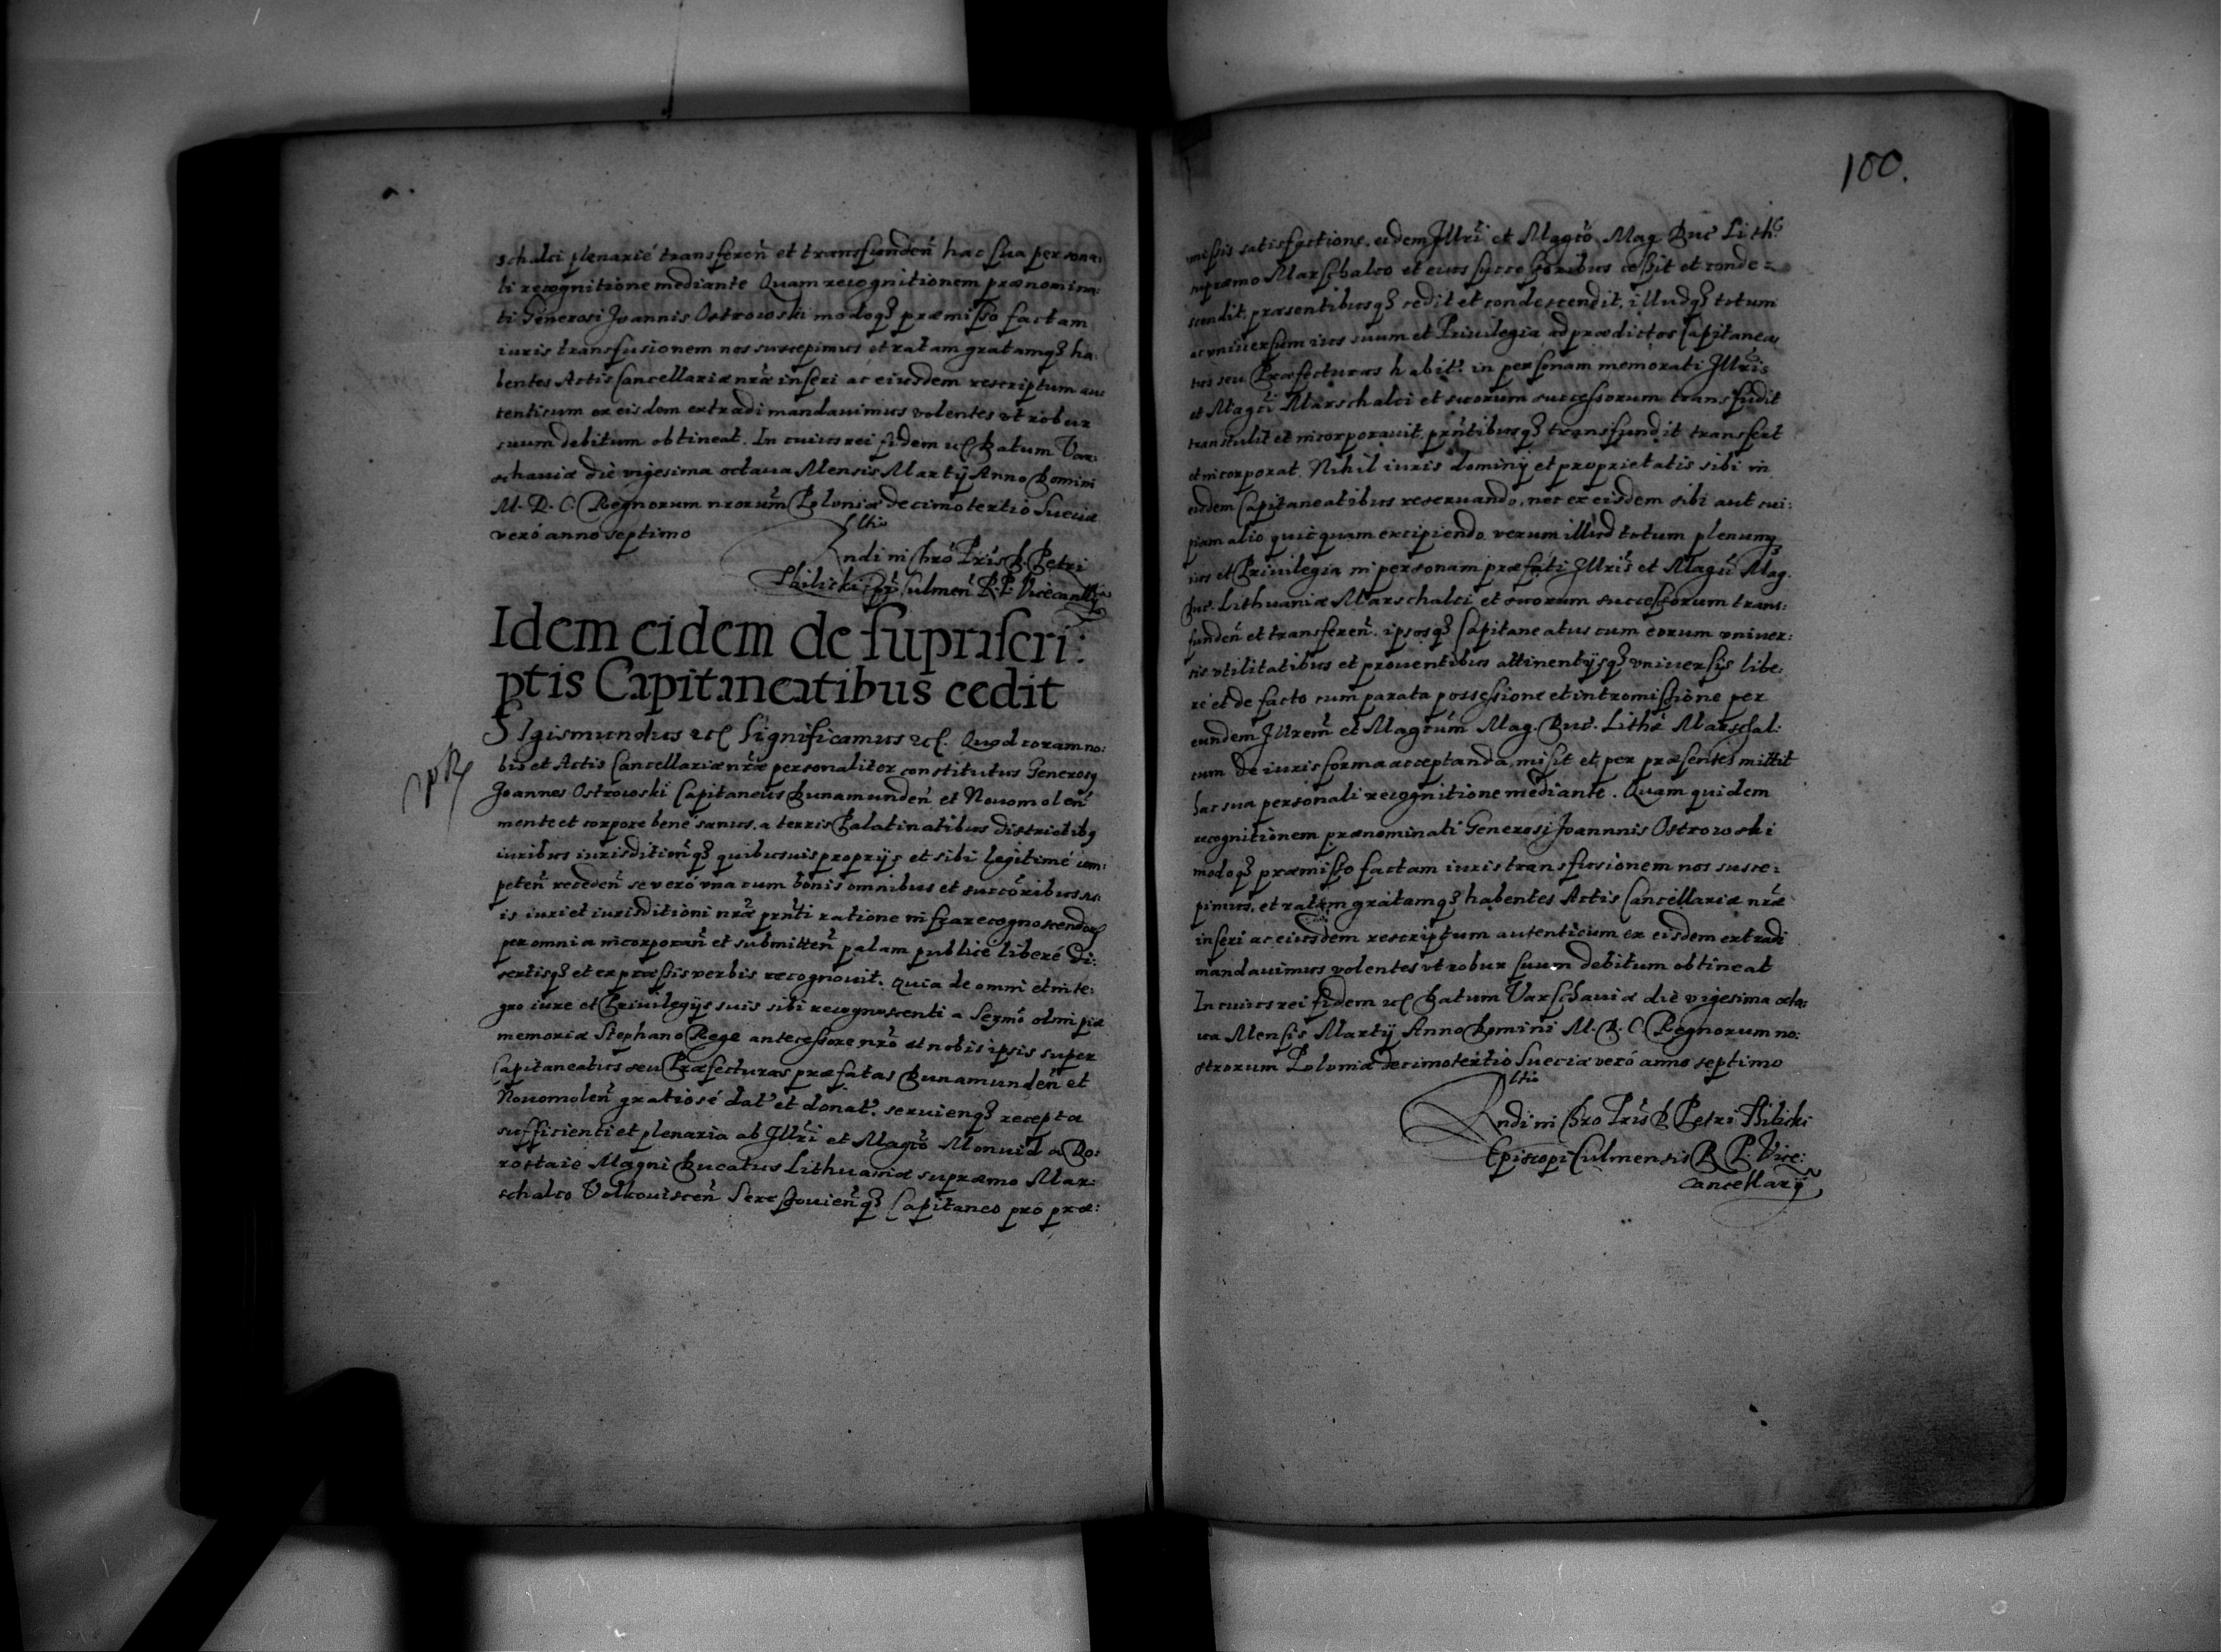 schalci plenarié transferen̄ et transfunden̄ hac sua persona:
li recognitione mediante Quam recognitionem prænomina:
ti Generosi Joannis Ostrowski modoq₃ præmisso factam
iuris transfusionem nos suscepimus et ratam gratamq₃ ha:
bentes Actis Cancellariæ nræ inseri ac eiusdem rescriptum au:
tenticum ex eisdem extradi mandauimus volentes vt robur
suum debitum obtineat. In cuius rei fidem etc Datum Var:
schauiæ die vigesima octaua Mensis Martij Anno Domini
M. D. C. Regnorum nrorum Poloniæ decimotertio Sueciæ
veró anno septimo
Rndi in Chro Pris D. Petri
Tilicki Epi Culmen̄ R. P. Vicecancellarij
Idem eidem de suprascri:
ptis Capitaneatibus cedit
Sigismundus etc Significamus etc. Quod coram no:
bis et Actis Cancellariæ nræ personaliter constitutus Generosus
Joannes Ostrowski Capitaneus Dunamunden̄ et Nouomolen̄
mente et corpore bené sanus, a terris Palatinatibus districtibus
iuribus iurisditionq₃ quibusuis proprijs et sibi legitimé com:
peten̄ receden̄ se veró vna cum bonis omnibus et succoribus su:
is iuri et iurisditioni nræ prnti ratione infrarecognoscendorum
per omnia incorporan̄ et submitten̄ palam publicé liberé di:
sertisq₃ et expressis verbis recognouit. Quia de omni et inte:
gro iure et Priuilegijs suis sibi recognoscenti a Sermo olim piæ
memoriæ Stephano Rege antecessore nro et nobis ipsis super
Capitaneatus seu Præfecturas præfatas Dunamunden̄ et
Nouomolen̄ gratiosé dat' et donat', seruienq₃ recepta
sufficienti et plenaria ab Jllri et Magco Monuid a Do:
rostaie Magni Ducatus Lithuaniæ supræmo Mar:
schalco Volkouiscen̄ Serestouien̄q₃ Capitaneo pro præ:
100.
missis satisfactione, eidem Jllri et Magco Mag. Duc' Lith:
supræmo Marschalco et eius successoribus cessit et conde:
scendit, præsentibusq₃ cedit et condescendit, illudq₃ totum
ac vniuersum ius suum et Priuilegia ad prædictos Capitanea
tus seu Præfecturas habit' in personam memorati Jllris
et Magci Marschalci et suorum successorum transfudit
transtulit et incorporauit, prntibusq₃ transfundit transfert
et incorporat. Nihil iuris dominij et proprietatis sibi in
eisdem Capitaneatibus reseruando, nec ex eisdem sibi aut cui:
piam alio quicquam excipiendo verum illud totum plenumq₃
ius et Priuilegia in personam præfati Jllris et Magci Mag.
Duc. Lithuaniæ Marschalci et suorum successorum trans:
funden̄ et transferen̄. ipsosq₃ Capitaneatus cum eorum vniuer:
sis vtilitatibus et prouentibus attinentijsq₃ vniuersis libe:
ré et de facto cum parata possessione et intromissione per
eundem Jllrem et Magcum Mag. Duc'. Lithæ Marschal:
cum de iuris forma acceptanda, misit et per præsentes mittit
hac sua personali recognitione mediante. Quam quidem
recognitionem prænominati Generosi Joannnis Ostrowski
modoq₃ præmisso factam iuris transfusionem nos susce:
pimus, et ratam gratamq₃ habentes Actis Cancellariæ nræ
inseri ac eiusdem rescriptum autenticum ex eisdem extradi
mandauimus volentes vt robur suum debitum obtineat
In cuius rei fidem etc Datum Varschauiæ die vigesima octa:
ua Mensis Martij Anno Domini M. D. C. Regnorum no:
strorum Poloniæ decimotertio Sueciæ veró anno septimo
Rndi in Chro Pris D Petri Tilicki
Episcopi Culmensis R. P. Vice:
cancellarij